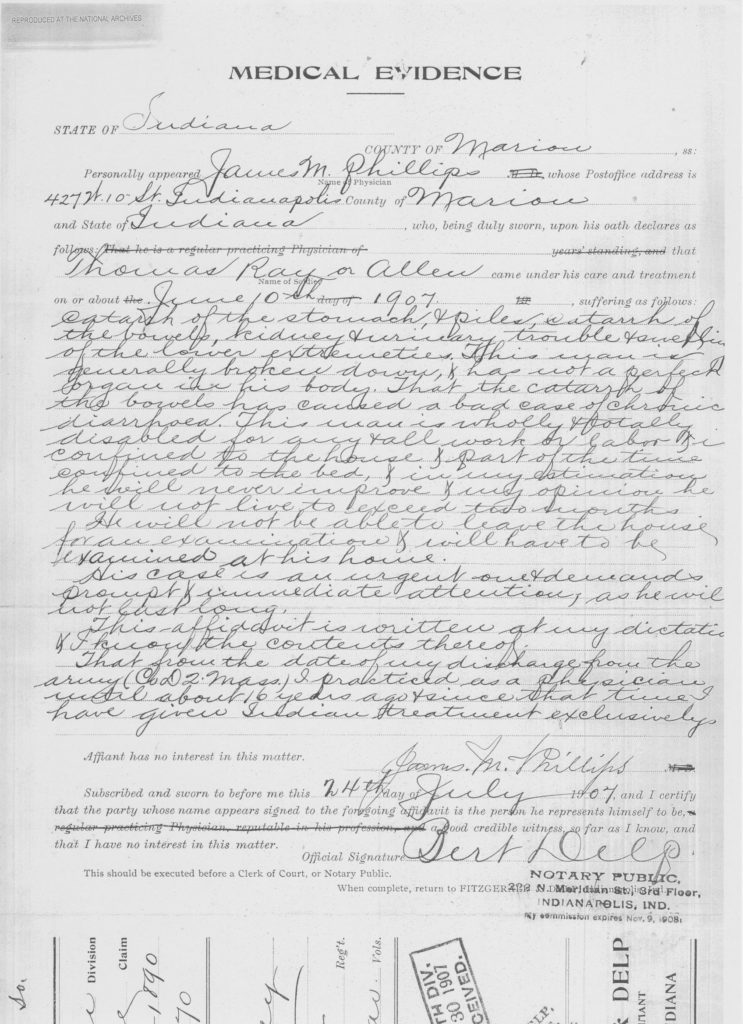 REPRODUCED AT THE NATIONAL ARCHIVES
MEDICAL EVIDENCE
STATE OF Indiana
COUNTY OF Marion, ss:
Personally appeared James M. Phillips M. D., whose Postoffice address is
Name of Physician
427 W. 10- St. Indianapolis County of Marion
and State of Indiana, who, being duly sworn, upon his oath declares as
follows: That he is a regular practicing Physician of years' standing, and that
Thomas Ray or Allen came under his care and treatment
Name of Soldier
on or about the June 10th day of 1907, suffering as follows:
catarrh of the stomach, & piles, catarrh of
the bowels, kidney & urinary trouble & swellin
of the lower extremeties. This man is
generally broken down, & has not a perfect
organ in his body. That the catarrh of
the bowels has caused a bad case of chronic
diarrhoea. This man is wholly & totally
disabled for any & all work or labor & i
confined to the house & part of the time
confined to the bed, & in my estimation
he will never improve & my opinion he
will not live to exceed two months
He will not be able to leave the house
for an examination & will have to be
examined at his home.
His case is an urgent one & demands
prompt & immediate attention, as he wil
not last long.
This affidavit is written at my dictatio
& I know the contents thereof,
That from the date of my discharge from the
army (Co D 2. Mass.) I practiced as a physician
until about 16 years ago & since that time I
have given Indian treatment exclusively
Affiant has no interest in this matter.
James. M. Phillips M. D.
Subscribed and sworn to before me this 24th day of July 1907, and I certify
that the party whose name appears signed to the foregoing affidavit is the person he represents himself to be, a
regular practicing Physician, reputable in his profession, and a good credible witness, so far as I know, and
that I have no interest in this matter.
Official Signature Bert Delp
This should be executed before a Clerk of Court, or Notary Public.
NOTARY PUBLIC,
When complete, return to FITZGERALD
222 N. Meridian St., 3rd Floor,
INDIANAPOLIS, IND.
My commission expires Nov. 9, 1908.
So.
Division
Claim
1890
70
Reg't.
Vols.
TH DIV.
30 1907
CEIVED.
DELP,
& DELP
DIANA